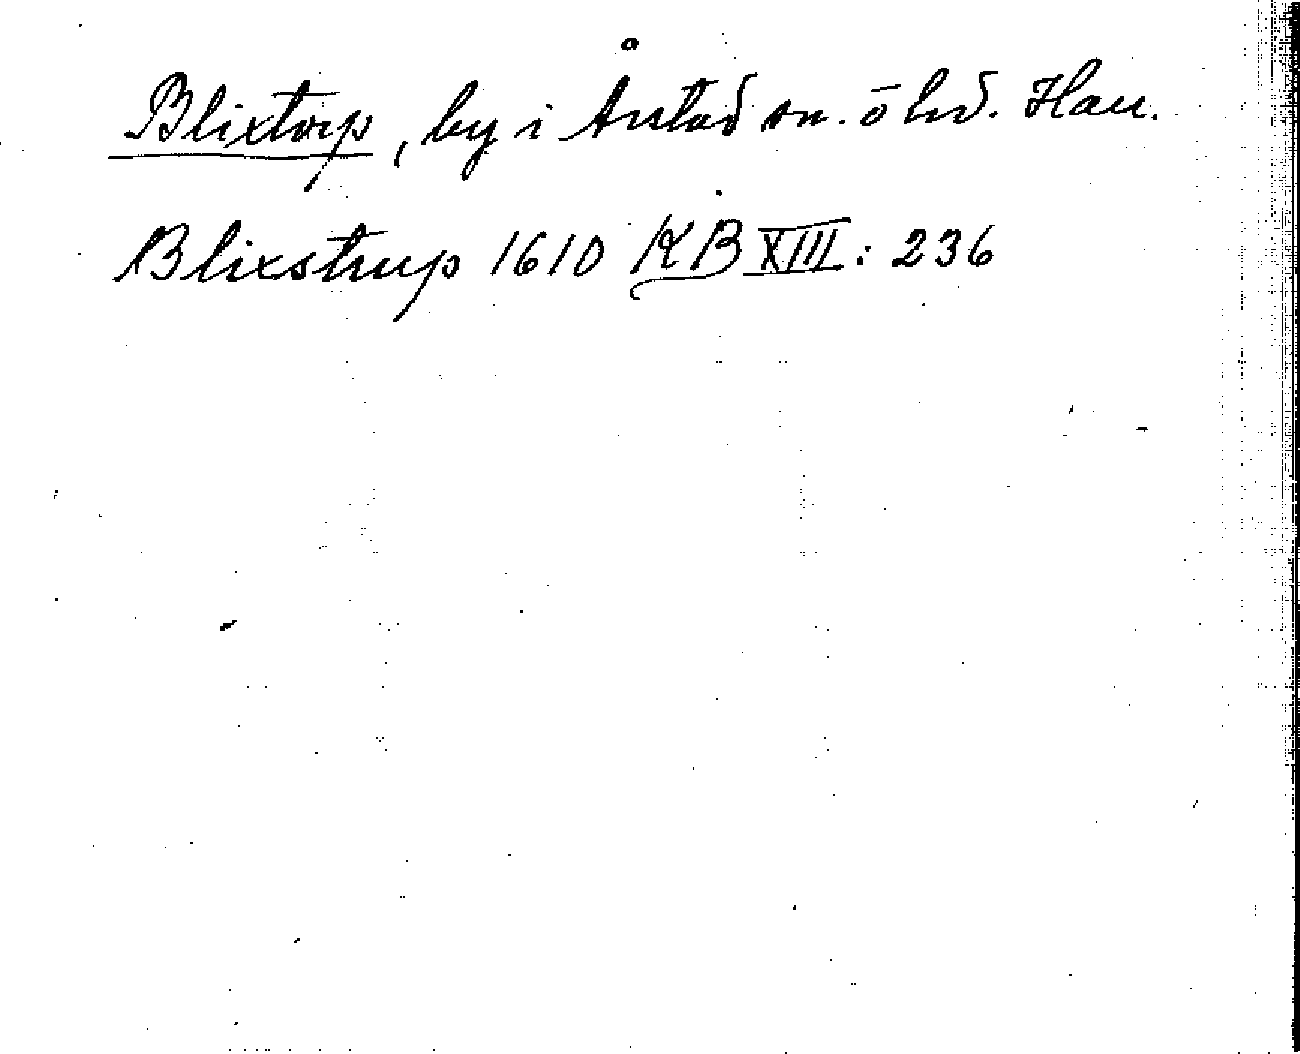 Blixtorp, by i Årstad sn. o hd. Hall.
Blixstrup 1610 KB XIII: 236